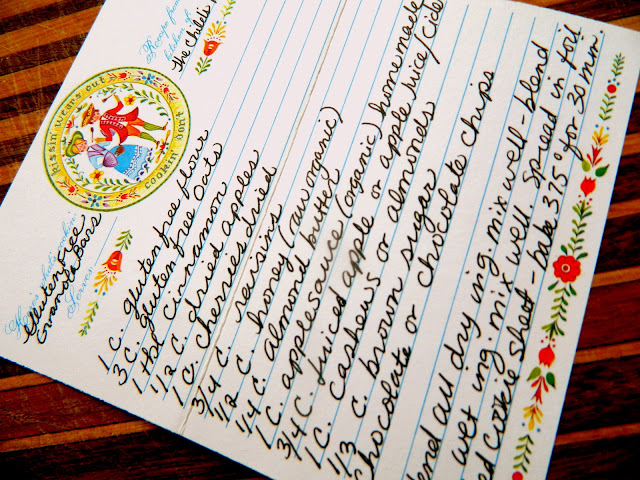 Recipe from
kitchen of
the Childs
kissin wears out
cookin don't
Here's what's cookin'
Gluten Free
Granola Bars
Serves
1 C. gluten free flour
3 C. gluten free oats
1 tbl cinnamon
1/2 C. dried apples
1 C. cherries dried
3/4 C. raisins
1/2 C. honey (raw organic)
1/4 C. almond butter
1 C. applesauce (organic) homemade
3/4 C. juiced apple or apple juice/cide
1 C. cashews or almonds
1/3 C. brown sugar
chocolate or chocolate chips
end all dry ing mix well - blend
wet ing mix well. Spread in foil
ed cookie sheet - bake 375° for 30 min.